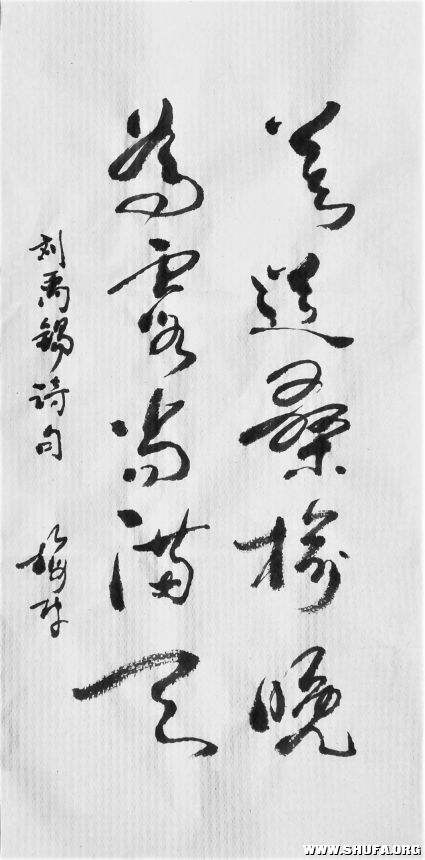 莫道桑榆晚
為霞尚滿天
刘禹錫詩句 梅
WWW.SHUFA.ORG